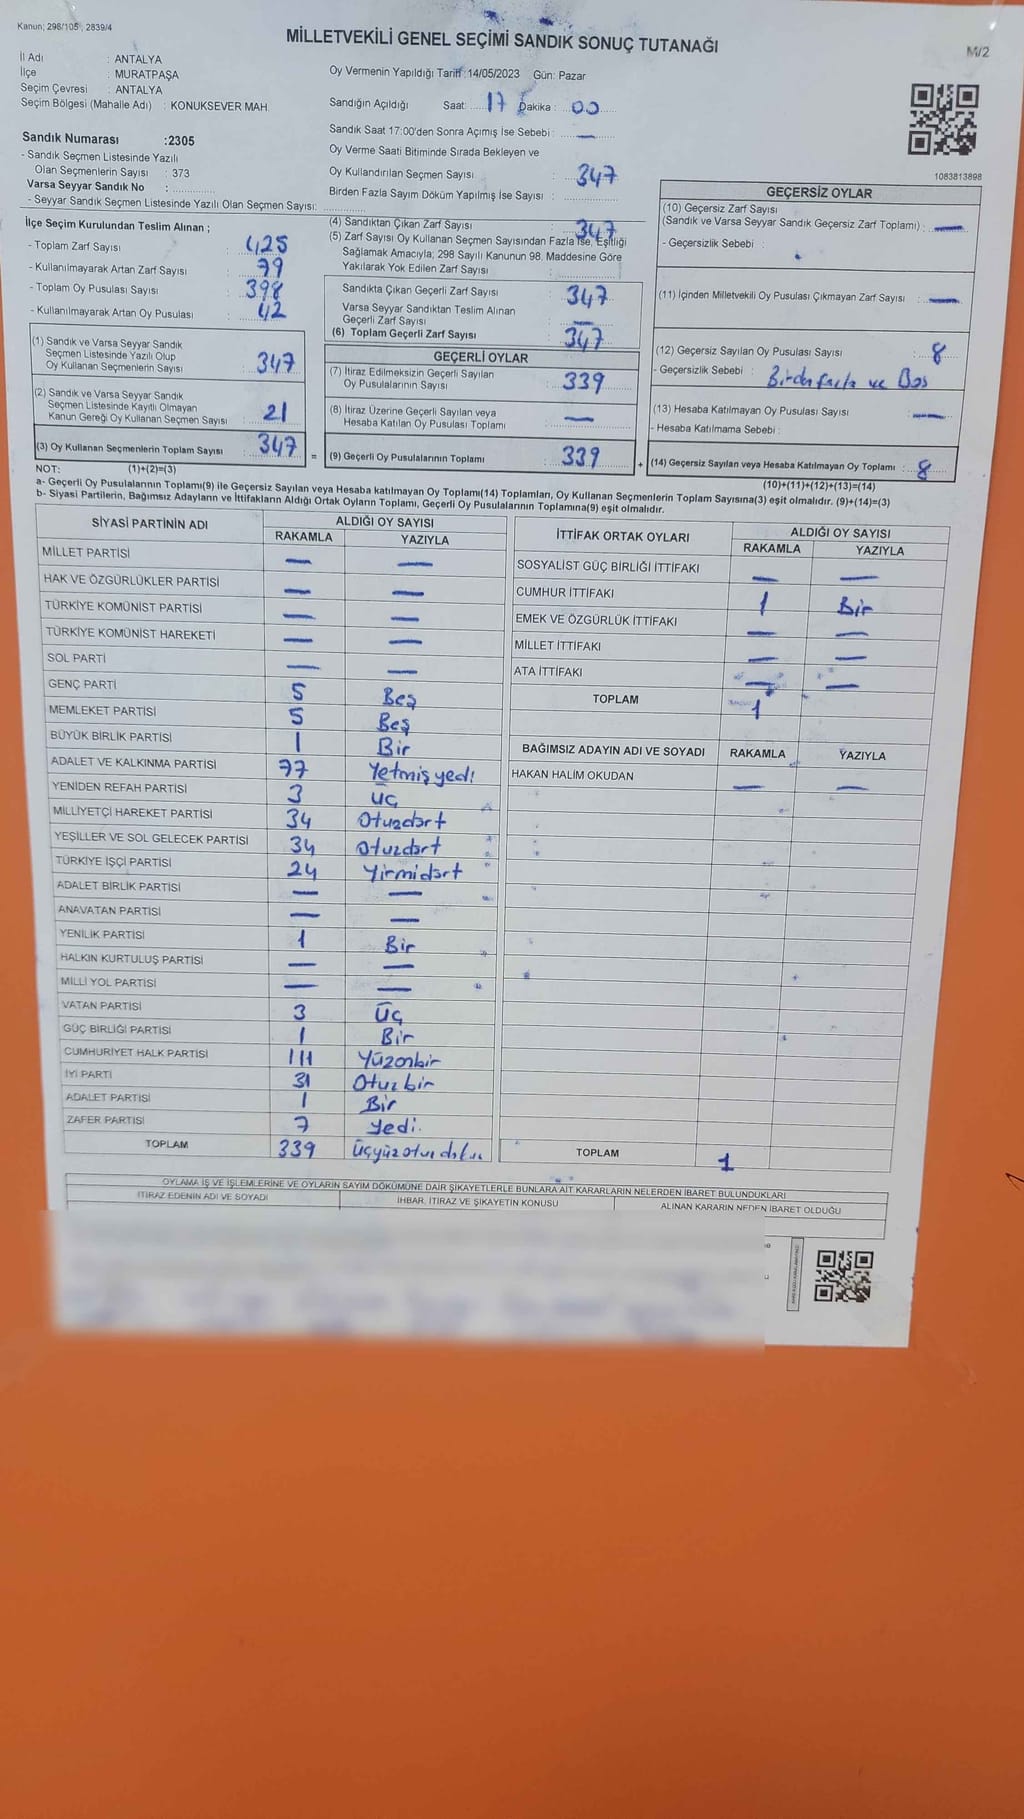 Kanun; 298/105 , 2839/4
MİLLETVEKİLİ GENEL SEÇİMİ SANDIK SONUÇ TUTANAĞI
M/2
İl Adı : ANTALYA
İlçe : MURATPAŞA
Seçim Çevresi : ANTALYA
Seçim Bölgesi (Mahalle Adı) : KONUKSEVER MAH.
Sandık Numarası :2305
- Sandık Seçmen Listesinde Yazılı
Olan Seçmenlerin Sayısı : 373
Varsa Seyyar Sandık No :
- Seyyar Sandık Seçmen Listesinde Yazılı Olan Seçmen Sayısı:
Oy Vermenin Yapıldığı Tarih :14/05/2023 Gün: Pazar
Sandığın Açıldığı Saat: 17 Dakika : 00
Sandık Saat 17:00'den Sonra Açımış İse Sebebi : —
Oy Verme Saati Bitiminde Sırada Bekleyen ve
Oy Kullandırılan Seçmen Sayısı : 347
Birden Fazla Sayım Döküm Yapılmış İse Sayısı :
1083813898
İlçe Seçim Kurulundan Teslim Alınan ;
- Toplam Zarf Sayısı : 425
- Kullanılmayarak Artan Zarf Sayısı : 79
- Toplam Oy Pusulası Sayısı : 398
- Kullanılmayarak Artan Oy Pusulası : 42
(1) Sandık ve Varsa Seyyar Sandık
Seçmen Listesinde Yazılı Olup
Oy Kullanan Seçmenlerin Sayısı : 347
(2) Sandık ve Varsa Seyyar Sandık
Seçmen Listesinde Kayıtlı Olmayan
Kanun Gereği Oy Kullanan Seçmen Sayısı : 21
(3) Oy Kullanan Seçmenlerin Toplam Sayısı : 347
(4) Sandıktan Çıkan Zarf Sayısı : 347
(5) Zarf Sayısı Oy Kullanan Seçmen Sayısından Fazla İse, Eşitliği
Sağlamak Amacıyla; 298 Sayılı Kanunun 98. Maddesine Göre
Yakılarak Yok Edilen Zarf Sayısı :
Sandıkta Çıkan Geçerli Zarf Sayısı : 347
Varsa Seyyar Sandıktan Teslim Alınan
Geçerli Zarf Sayısı : —
(6) Toplam Geçerli Zarf Sayısı : 347
GEÇERLİ OYLAR
(7) İtiraz Edilmeksizin Geçerli Sayılan
Oy Pusulalarının Sayısı : 339
(8) İtiraz Üzerine Geçerli Sayılan veya
Hesaba Katılan Oy Pusulası Toplamı : —
= (9) Geçerli Oy Pusulalarının Toplamı : 339
GEÇERSİZ OYLAR
(10) Geçersiz Zarf Sayısı
(Sandık ve Varsa Seyyar Sandık Geçersiz Zarf Toplamı) : —
- Geçersizlik Sebebi :
(11) İçinden Milletvekili Oy Pusulası Çıkmayan Zarf Sayısı : —
(12) Geçersiz Sayılan Oy Pusulası Sayısı : 8
- Geçersizlik Sebebi : Birden fazla ve Boş
(13) Hesaba Katılmayan Oy Pusulası Sayısı : —
- Hesaba Katılmama Sebebi :
+ (14) Geçersiz Sayılan veya Hesaba Katılmayan Oy Toplamı : 8
NOT: (1)+(2)=(3)
(10)+(11)+(12)+(13)=(14)
a- Geçerli Oy Pusulalarının Toplamı(9) ile Geçersiz Sayılan veya Hesaba katılmayan Oy Toplamı(14) Toplamları, Oy Kullanan Seçmenlerin Toplam Sayısına(3) eşit olmalıdır. (9)+(14)=(3)
b- Siyasi Partilerin, Bağımsız Adayların ve İttifakların Aldığı Ortak Oyların Toplamı, Geçerli Oy Pusulalarının Toplamına(9) eşit olmalıdır.
SİYASİ PARTİNİN ADI ALDIĞI OY SAYISI
RAKAMLA YAZIYLA
MİLLET PARTİSİ — —
HAK VE ÖZGÜRLÜKLER PARTİSİ — —
TÜRKİYE KOMÜNİST PARTİSİ — —
TÜRKİYE KOMÜNİST HAREKETİ — —
SOL PARTİ — —
GENÇ PARTİ 5 Beş
MEMLEKET PARTİSİ 5 Beş
BÜYÜK BİRLİK PARTİSİ 1 Bir
ADALET VE KALKINMA PARTİSİ 77 Yetmişyedi
YENİDEN REFAH PARTİSİ 3 üç
MİLLİYETÇİ HAREKET PARTİSİ 34 Otuzdört
YEŞİLLER VE SOL GELECEK PARTİSİ 34 Otuzdört
TÜRKİYE İŞÇİ PARTİSİ 24 Yirmidört
ADALET BİRLİK PARTİSİ — —
ANAVATAN PARTİSİ — —
YENİLİK PARTİSİ 1 Bir
HALKIN KURTULUŞ PARTİSİ — —
MİLLİ YOL PARTİSİ — —
VATAN PARTİSİ 3 Üç
GÜÇ BİRLİĞİ PARTİSİ 1 Bir
CUMHURİYET HALK PARTİSİ 111 Yüzonbir
İYİ PARTİ 31 Otuzbir
ADALET PARTİSİ 1 Bir
ZAFER PARTİSİ 7 Yedi.
TOPLAM 339 Üçyüzotuzdokuz
İTTİFAK ORTAK OYLARI ALDIĞI OY SAYISI
RAKAMLA YAZIYLA
SOSYALİST GÜÇ BİRLİĞİ İTTİFAKI — —
CUMHUR İTTİFAKI 1 Bir
EMEK VE ÖZGÜRLÜK İTTİFAKI — —
MİLLET İTTİFAKI — —
ATA İTTİFAKI — —
TOPLAM 1
BAĞIMSIZ ADAYIN ADI VE SOYADI RAKAMLA YAZIYLA
HAKAN HALİM OKUDAN — —
TOPLAM 1
OYLAMA İŞ VE İŞLEMLERİNE VE OYLARIN SAYIM DÖKÜMÜNE DAİR ŞİKAYETLERLE BUNLARA AİT KARARLARIN NELERDEN İBARET BULUNDUKLARI
İTİRAZ EDENİN ADI VE SOYADI İHBAR, İTİRAZ VE ŞİKAYETİN KONUSU ALINAN KARARIN NEDEN İBARET OLDUĞU